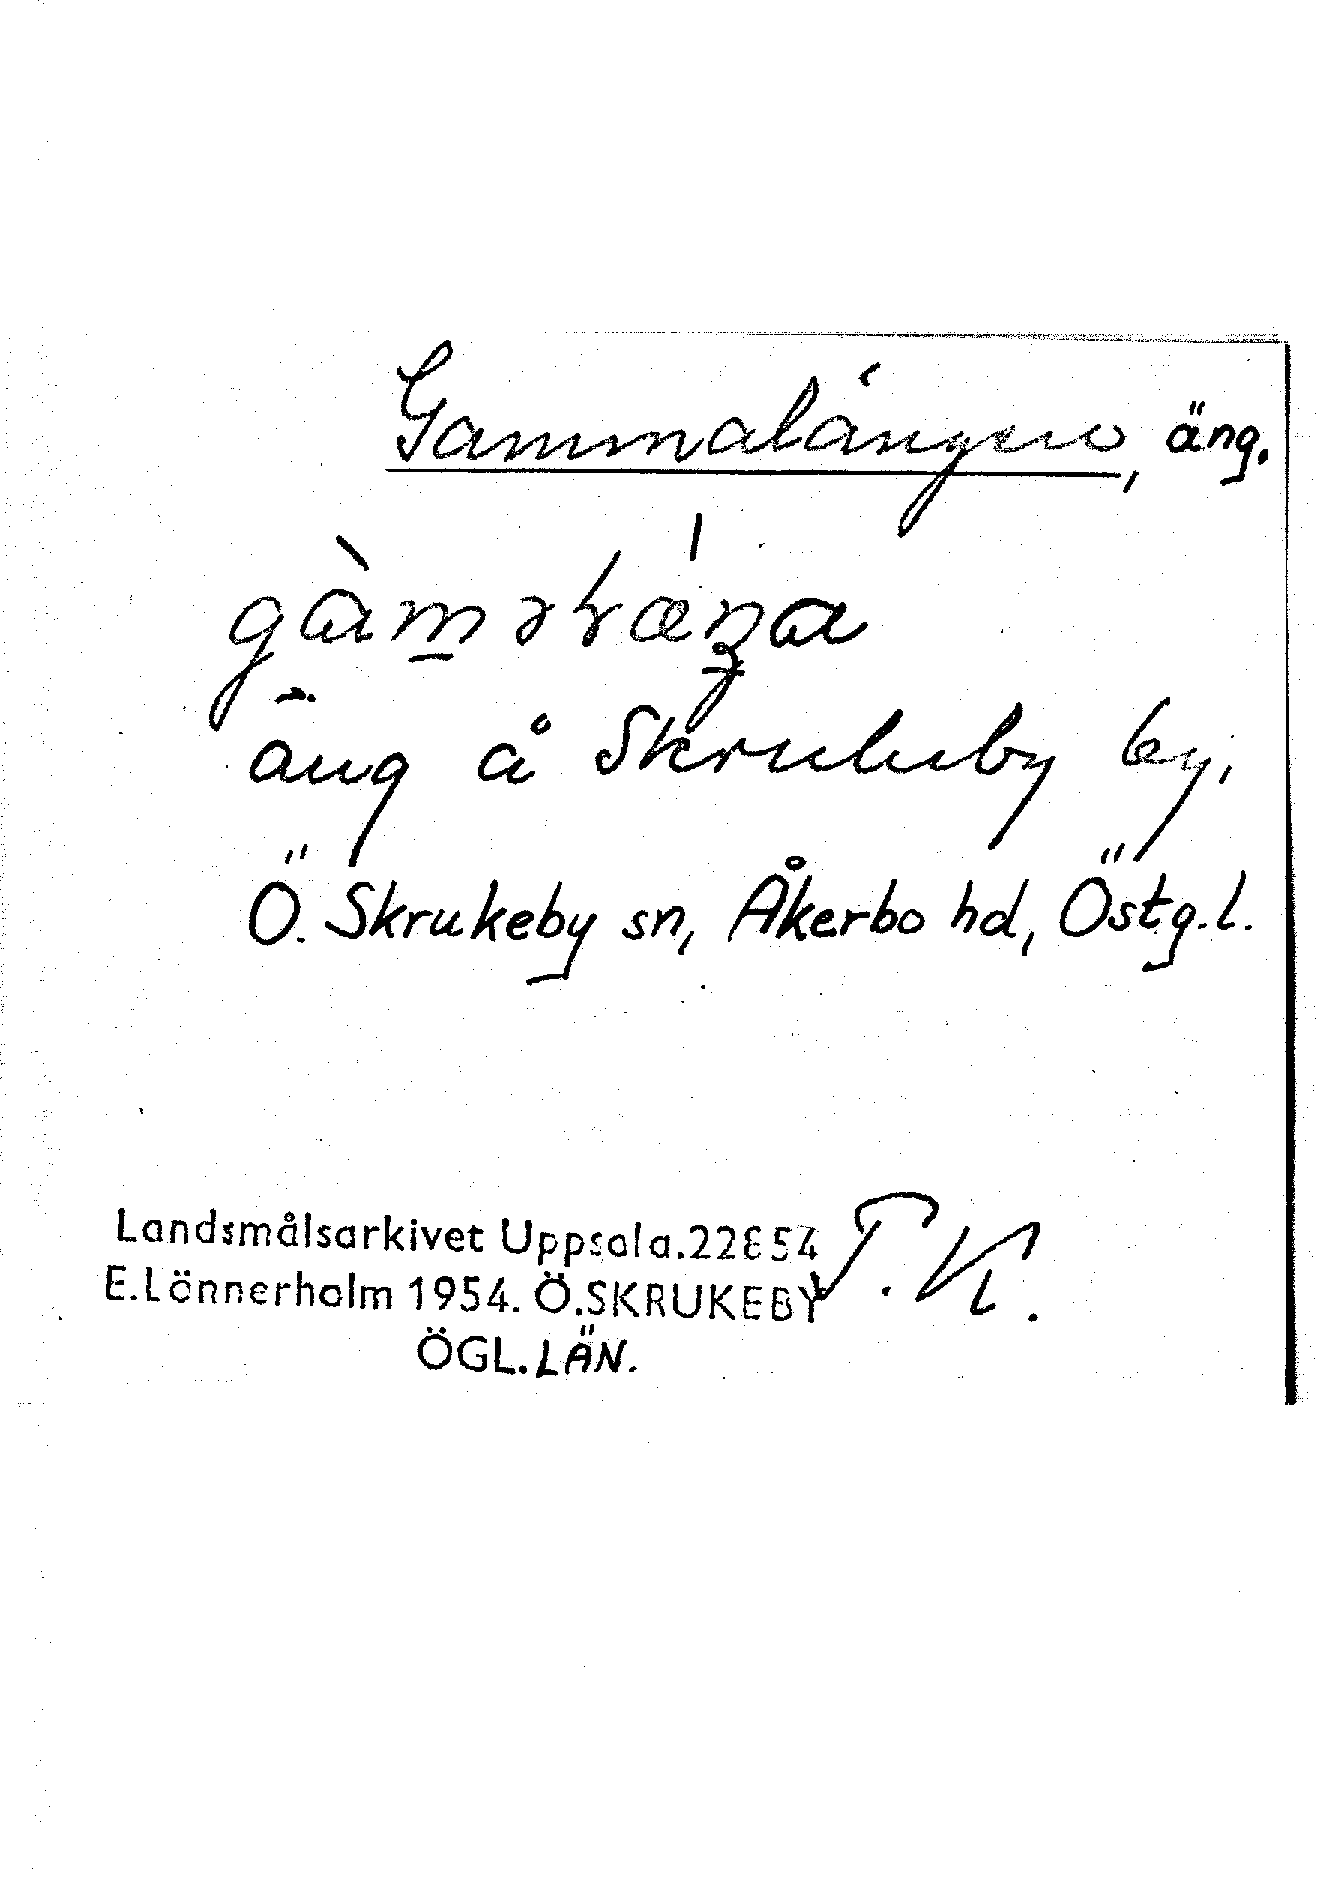 Gammalängen, äng.
äng å Skrukeby by,
Ö. Skrukeby sn, Åkerbo hd, Östg.l.
Landsmålsarkivet Uppsala.22854
E.Lönnerholm 1954. Ö.SKRUKEBY
ÖGL.LÄN.